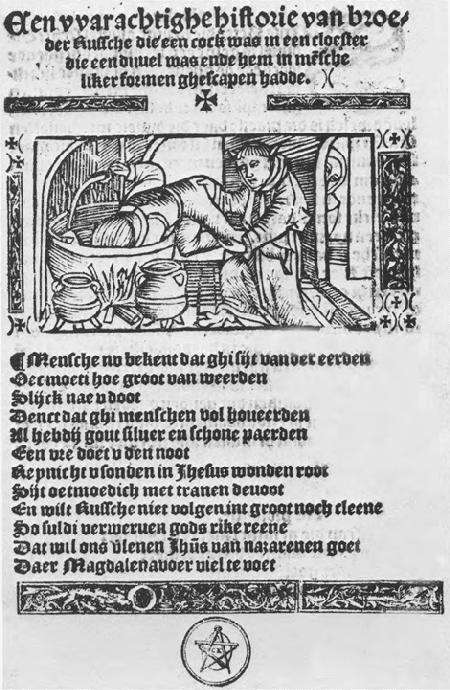 Een vvarachtighe historie van broe/
der Russche die een cock was in een cloester
die een duuel was ende hem in mēsche
liker formen ghescapen hadde.
¶ Mensche nv bekent dat ghi sijt vander eerden
Oetmoeti hoe groot van weerden
Slijck nae v doot
Denct dat ghi menschen vol houeerden
Al hebdij gout siluer en schone paerden
Een vre doet v den noot
Reynicht v sonden in Jhesus wonden root
Sijt oetmoedich met tranen deuoot
En wilt Russche niet volgen int groot noch cleene
So suldi verweruen gods rike reene
Dat wil ons v̄lenen Jhūs van nazarenen goet
Daer Magdalena voer viel te voet